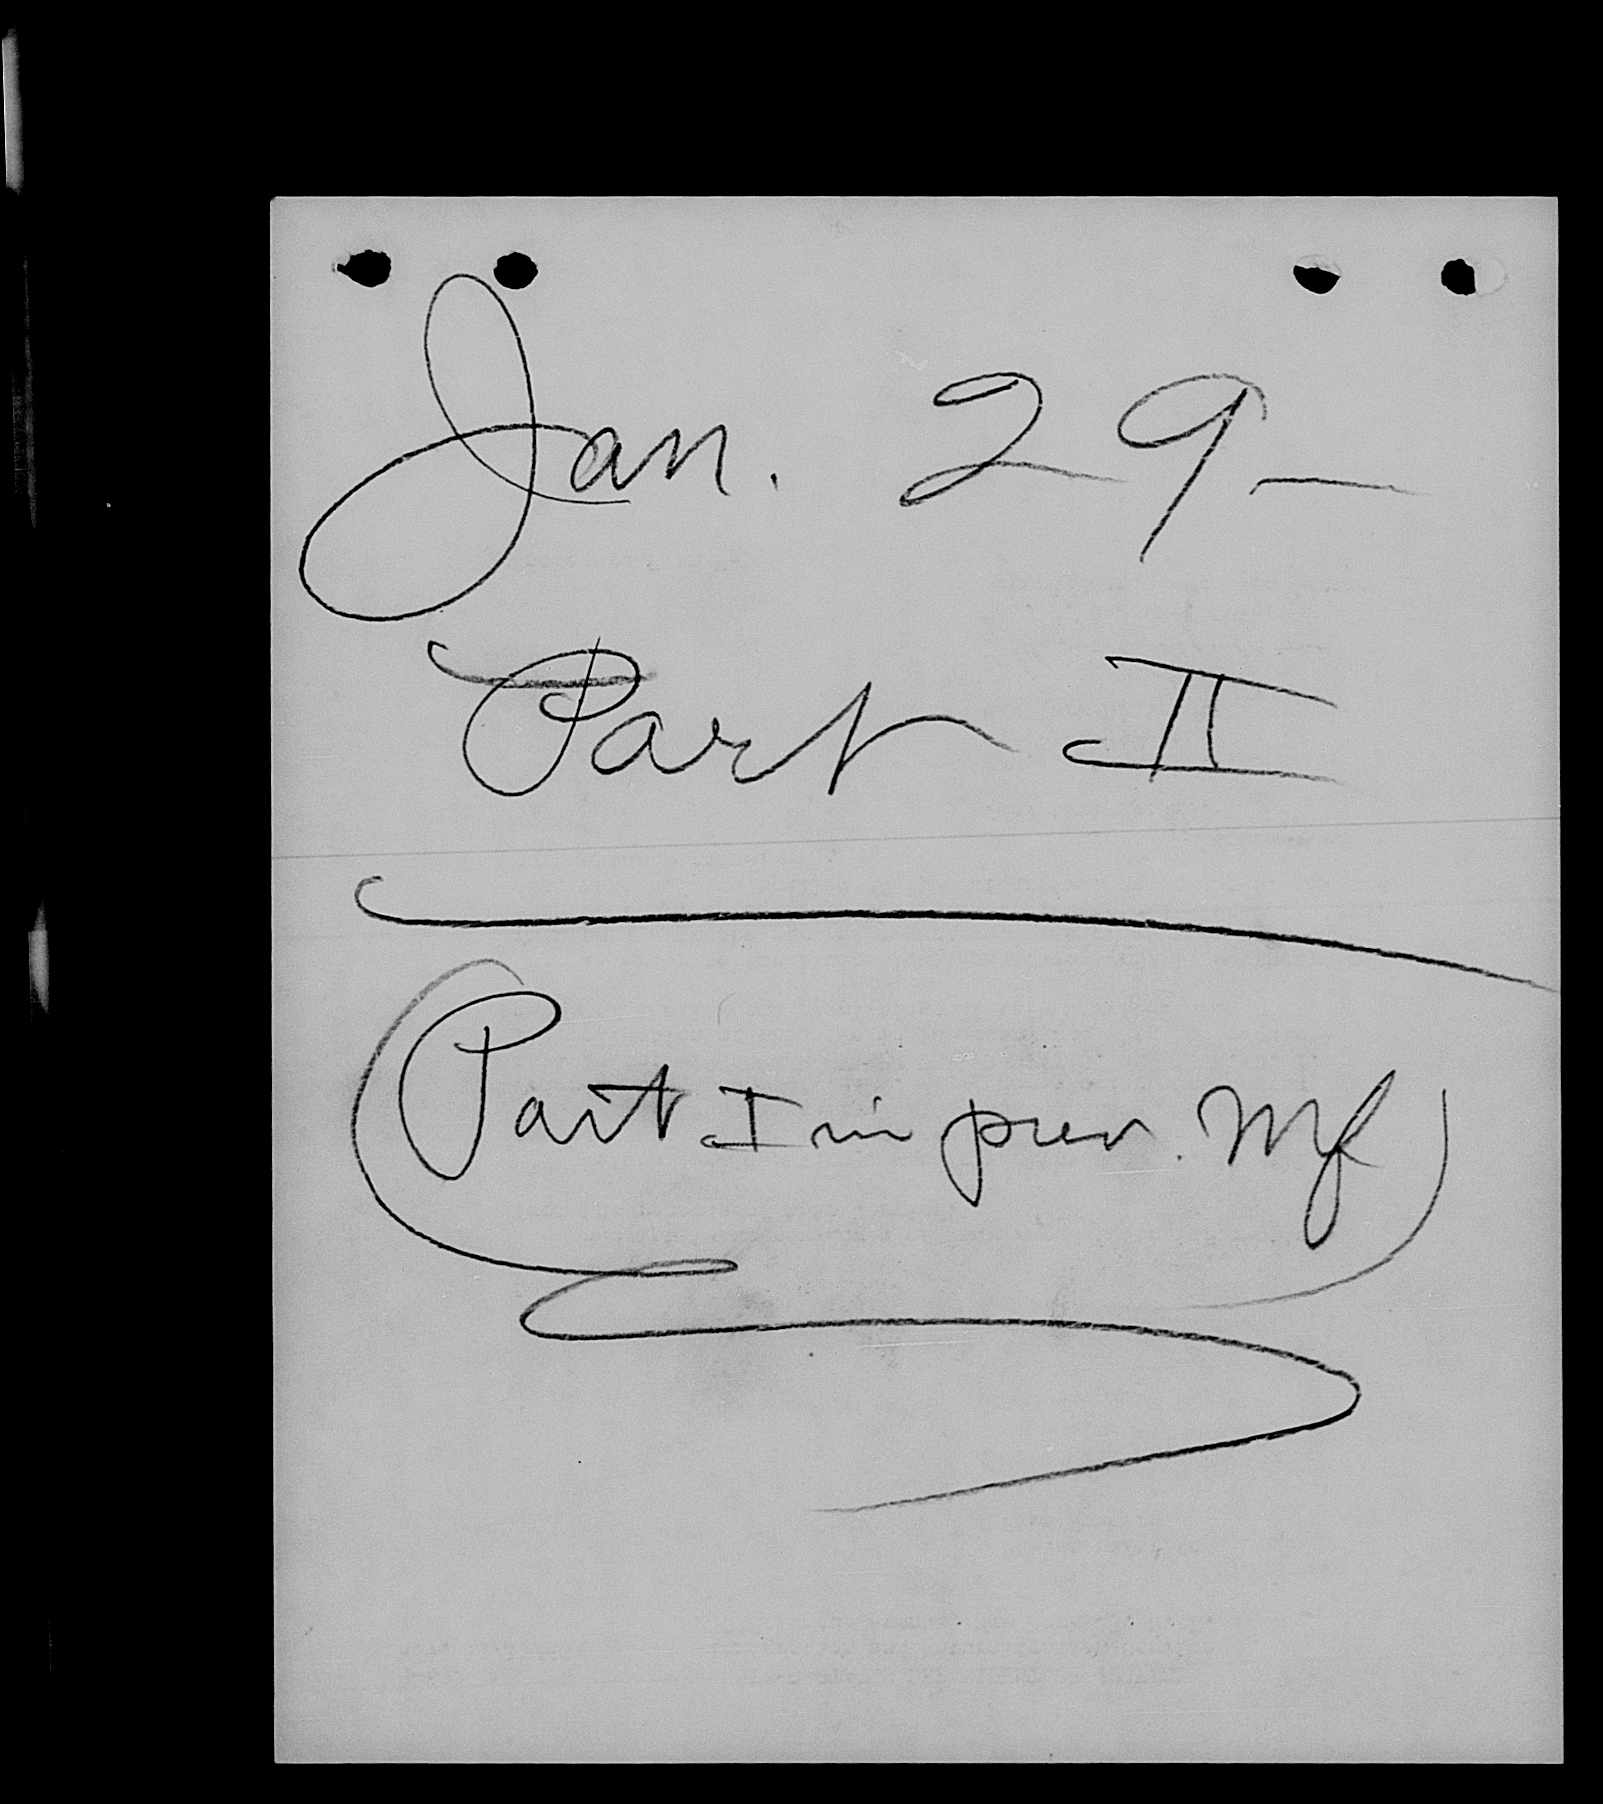 Jan. 29—
Part II
(Part I in prev. Mf)